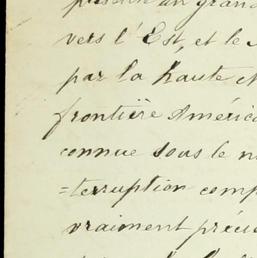 un grand
vers l'Est, et le
par la haute et
frontière América
connue sous le n
=terruption comp
vraiment précie